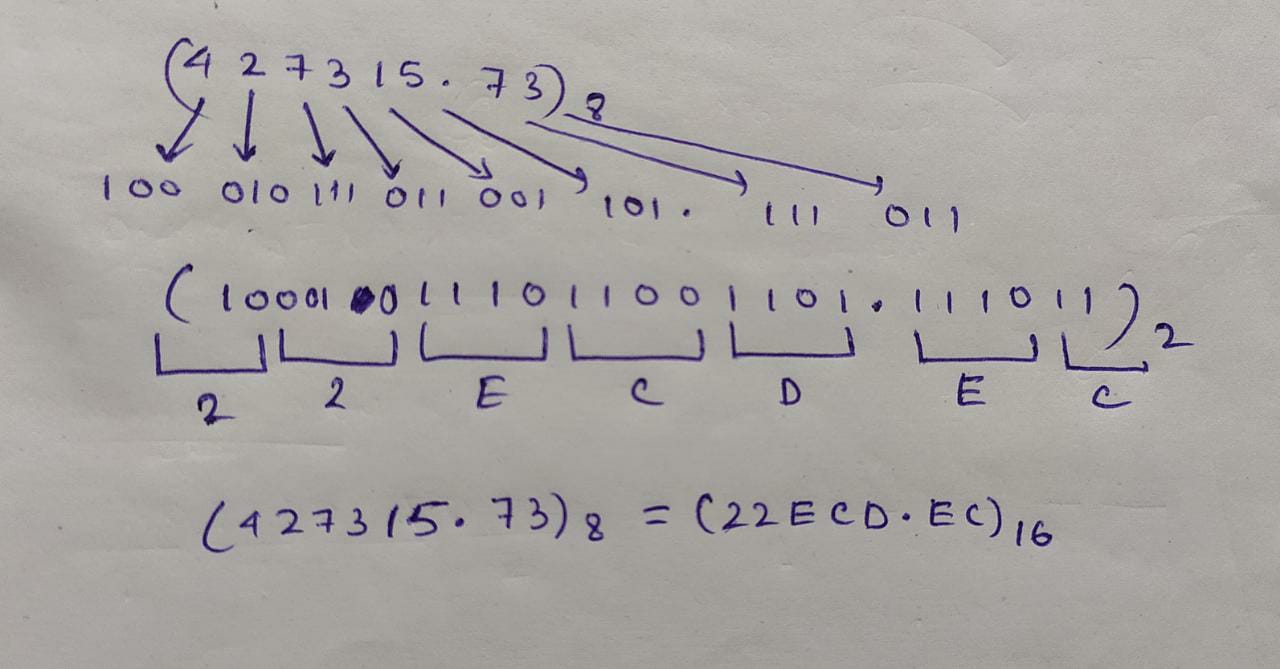 (427315.73)8
100 010 111 011 001 101. 111 011
(100010111011001101.111011)2
2 2 E C D E C
(427315.73)8 = (22ECD.EC)16